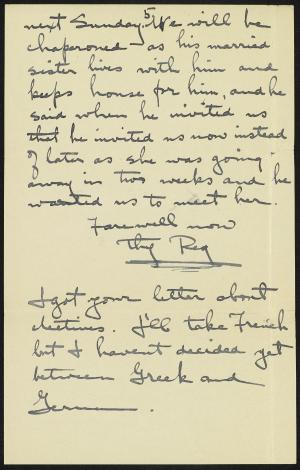 next Sunday. We will be
chaperoned - as his married
sister lives with him and
keeps house for him, and he
said when he invited us
that he invited us now instead
of later as she was going
away in two weeks and he
wanted us to meet her.
Farewell now
Thy Reg
I got your letter about
electives. I'll take French
but I haven't decided yet
between Greek and
German.